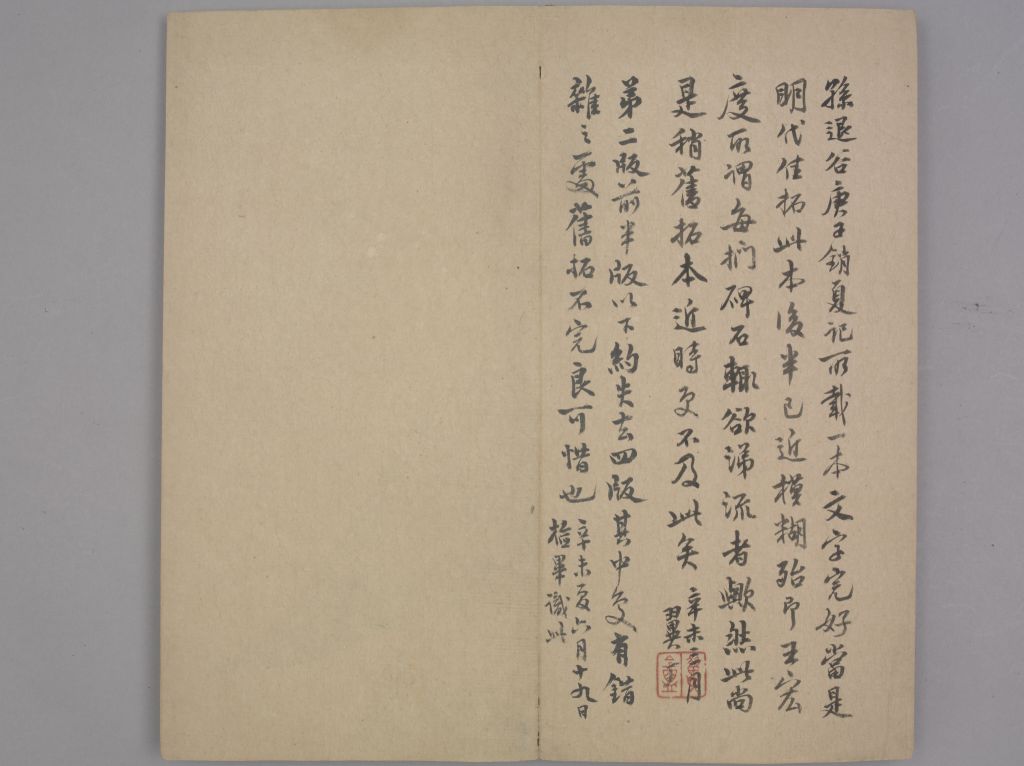 孫退谷庚子銷夏記所載一本文字完好當是
明代佳拓此本後半已近模糊殆即王宏
度所謂每捫碑石輒欲涕流者歟然此尚
是稍舊拓本近時更不及此矣
辛未二月
翼
第二版前半版以下約失去四版其中更有錯
雜之處舊拓不完良可惜也
辛未夏六月十九日
檢畢識此